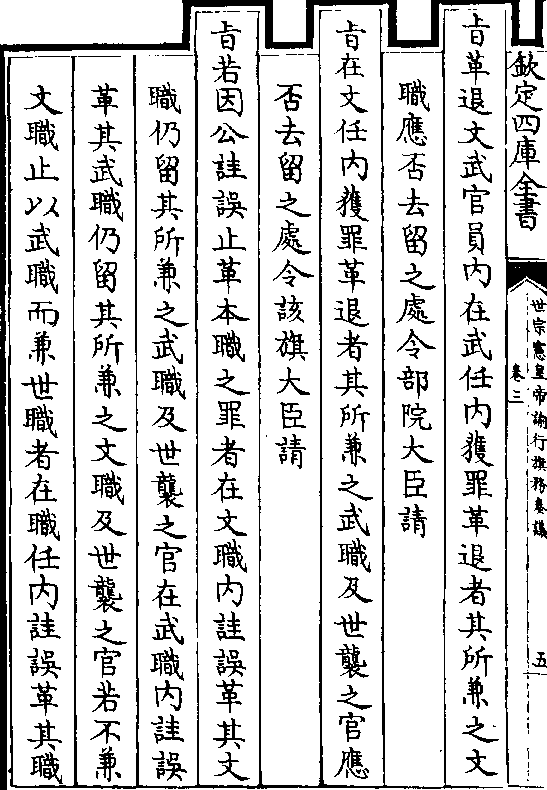 欽定四庫全書
世宗憲皇帝諭行旗務奏議
卷三
五
旨革退文武官員内在武任内獲罪革退者其所兼之文
職應否去留之處令部院大臣請
旨在文任内獲罪革退者其所兼之武職及世襲之官應
否去留之處令該旗大臣請
旨若因公詿誤止革本職之罪者在文職内詿誤革其文
職仍留其所兼之武職及世襲之官在武職内詿誤
革其武職仍留其所兼之文職及世襲之官若不兼
文職止以武職而兼世職者在職任内詿誤革其職